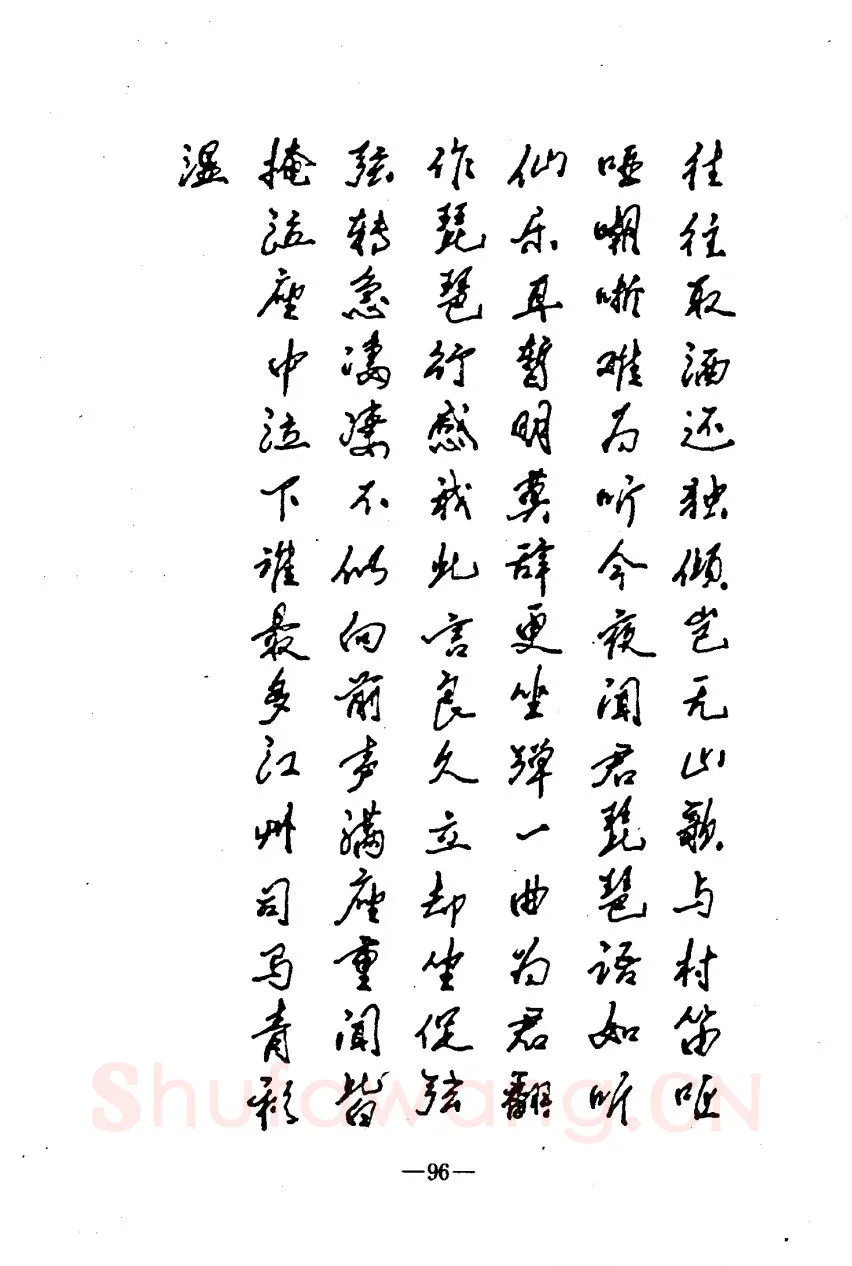 往往取酒还独倾岂无山歌与村笛呕
哑嘲哳难为听今夜闻君琵琶语如听
仙乐耳暂明莫辞更坐弹一曲为君翻
作琵琶行感我此言良久立却坐促弦
弦转急凄凄不似向前声满座重闻皆
掩泣座中泣下谁最多江州司马青衫
湿
Shufawang.CN
—96—